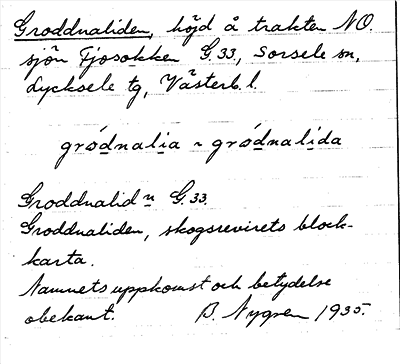 Groddnaliden, höjd å trakten NO.
sjön Fjosokken G.33, Sorsele sn,
Lycksele tg, Västerb. l.
gródnalia ~ gródnalida
Groddnalidⁿ G.33.
Groddnaliden, skogsrevirets block-
karta.
Namnets uppkomst och betydelse
obekant. B. Nygren 1935.